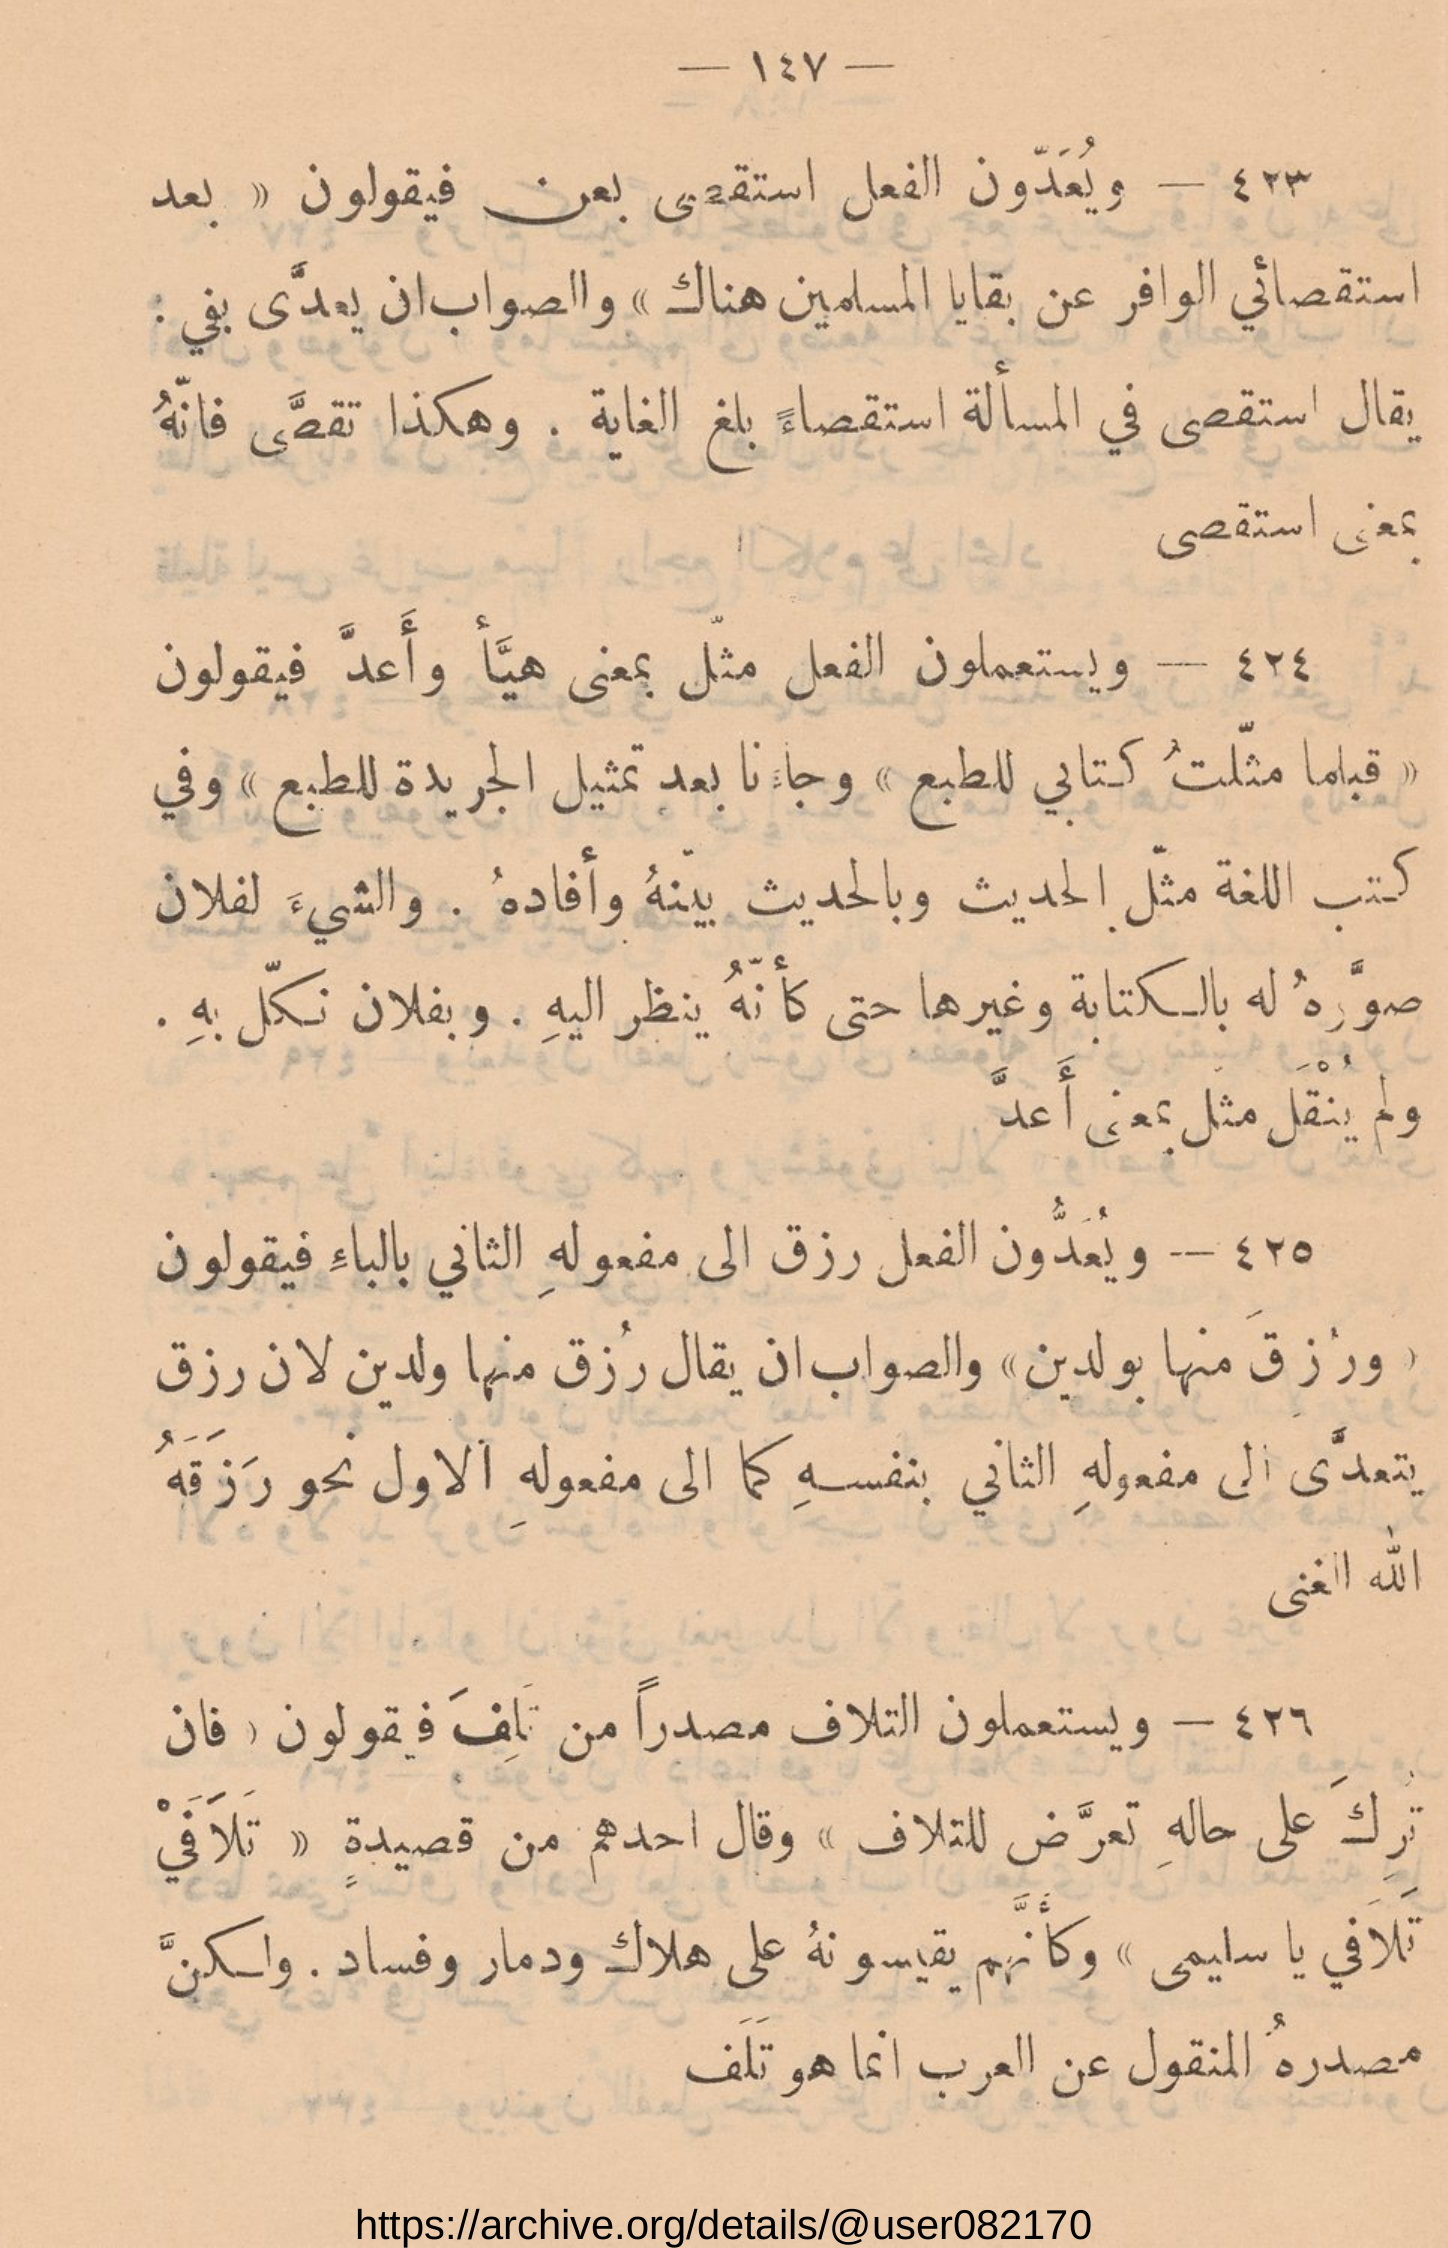 — ١٤٧ —
٤٢٣ — ويُعَدّون الفعل استقصى بعن فيقولون « بعد
استقصائي الوافر عن بقايا المسلمين هناك » والصواب ان يعدَّى بفي :
يقال استقصى في المسألة استقصاءً بلغ الغاية . وهكذا تقصَّى فانّهُ
بمعنى استقصى
٤٢٤ — ويستعملون الفعل مثّل بمعنى هيَّأ وأَعدَّ فيقولون
« قبلما مثّلتُ كتابي للطبع » وجاءنا بعد تمثيل الجريدة للطبع » وفي
كتب اللغة مثّل الحديث وبالحديث بيّنهُ وأفادهُ . والشيءَ لفلان
صوَّرهُ له بالكتابة وغيرها حتى كأنّهُ ينظر اليهِ . وبفلان نكّل بهِ .
ولم يُنْقَل مثل بمعنى أَعدَّ
٤٢٥ — ويُعَدُّون الفعل رزق الى مفعولهِ الثاني بالباءِ فيقولون
« ورُزِقَ منها بولدين » والصواب ان يقال رُزق منها ولدين لان رزق
يتعدَّى الى مفعولهِ الثاني بنفسهِ كما الى مفعولهِ الاول نحو رَزَقَهُ
الله الغنى
٤٢٦ — ويستعملون التلاف مصدراً من تَلِفَ فيقولون « فان
تُرِكَ على حالهِ تعرَّض للتلاف » وقال احدهم من قصيدةٍ « تَلَافَيْ
تَلَافي يا سليمى » وكأنَّهم يقيسونهُ على هلاك ودمار وفساد . ولكنَّ
مصدرهُ المنقول عن العرب انما هو تَلَف
https://archive.org/details/@user082170